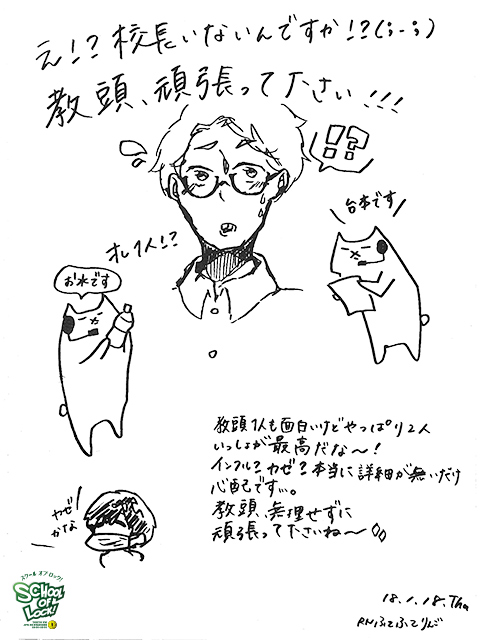 え!?校長いないんですか!?(;-;)
教頭、頑張って下さい!!!
!?
台本です
オレ1人!?
お水です
教頭1人も面白いけどやっぱり2人
いっしょが最高だな〜!
インフル?カゼ?本当に詳細が無いだけ
心配です…。
教頭、無理せずに
頑張って下さいね〜
カゼ
かな
スクール オブ ロック!
SCHOOL
OF
LOCK!
18.1.18.Thu
RNふてふてりんご